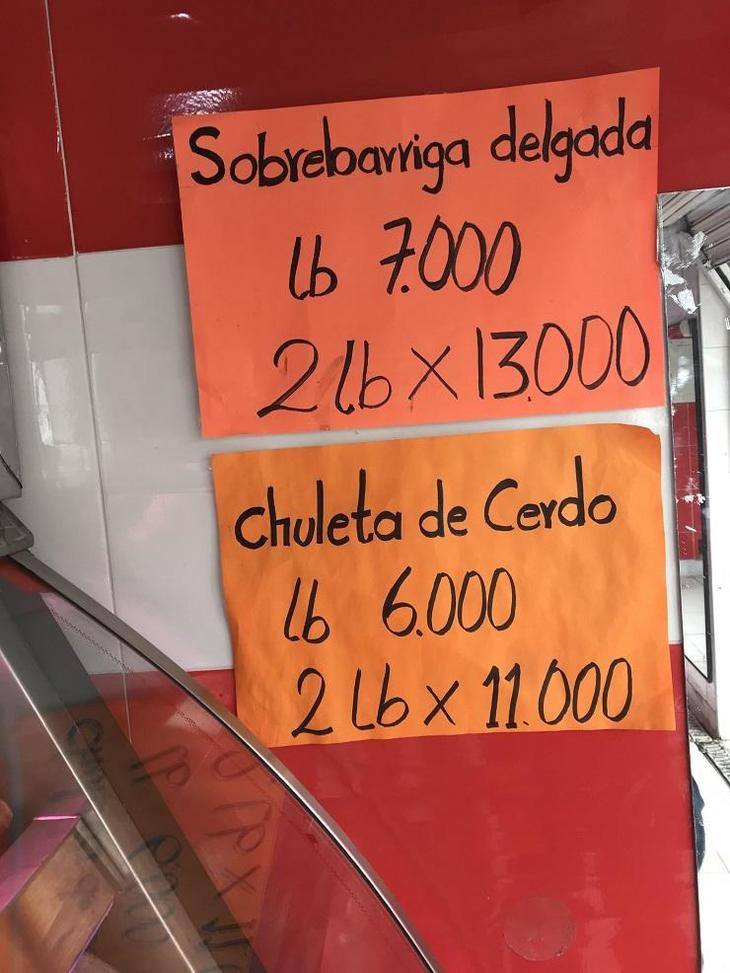 Sobrebarriga delgada
lb 7.000
2 lb x 13.000
Chuleta de Cerdo
lb 6.000
2 Lb x 11.000